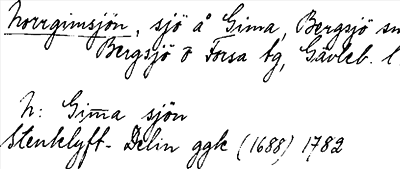 Norrgimsjön, sjö å Gima, Bergsjö sn
Bergsjö o Forsa tg, Gävleb. l.
N: Gimma sjön
Stenklyft- Delin ggk (1688) 1782